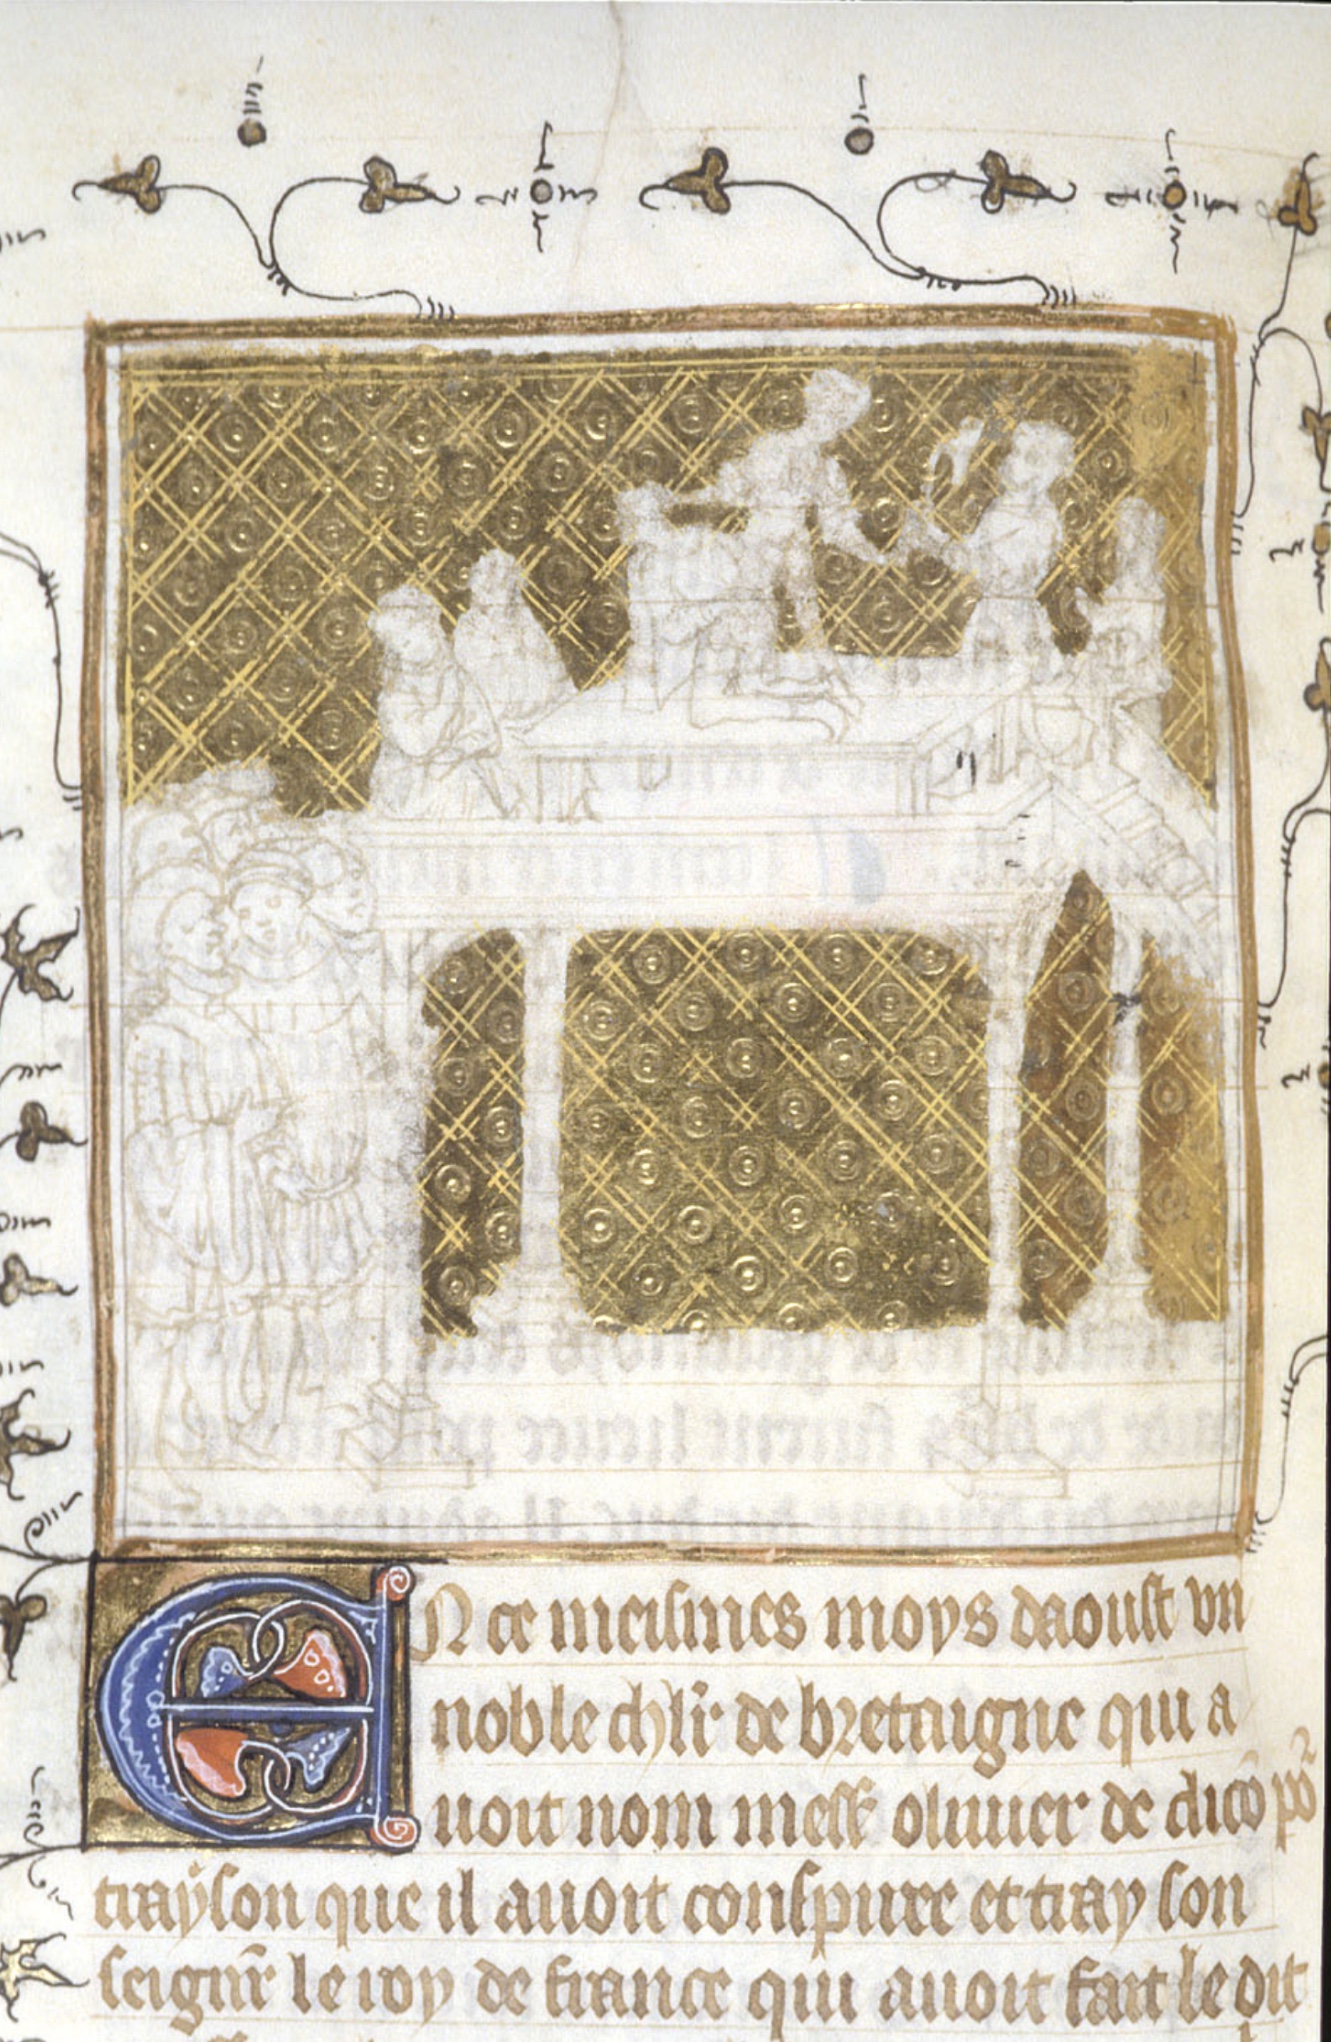 EN ce meismes moys daoust vn
noble chlr de bretaigne qui a
uoit nom mess oliuier de clico po
trayson que il auoit conspiree et tray son
seignr le roy de france qui auoit fait le dit